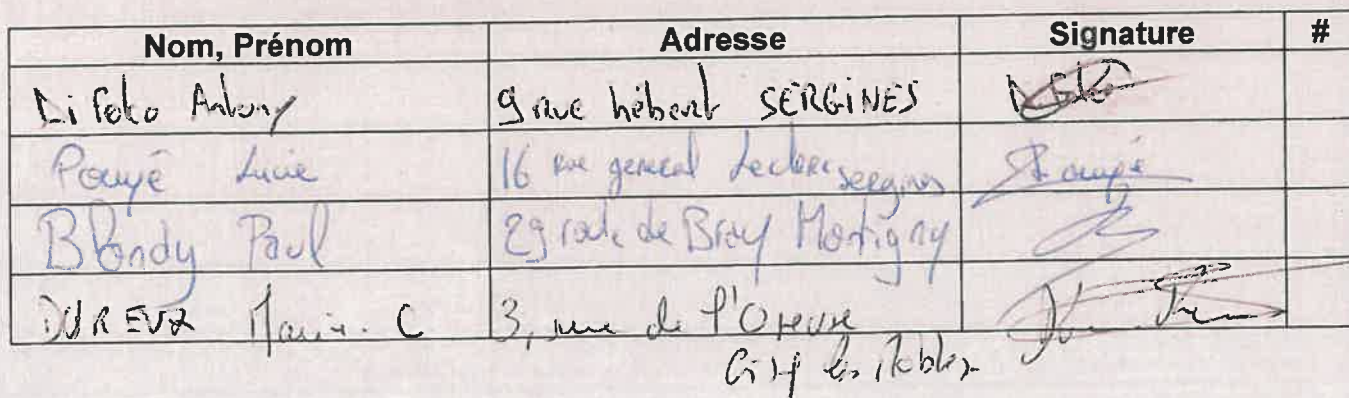 Nom, Prénom Adresse Signature #
Di Folco Antony 9 rue hébert SERGINES
Pouyé Lucie 16 rue general Leclerc Sergines Pouyé
Blondy Paul 29 route de Bray Montigny
DUREUX Marie. C 3, rue de l'Oreuse